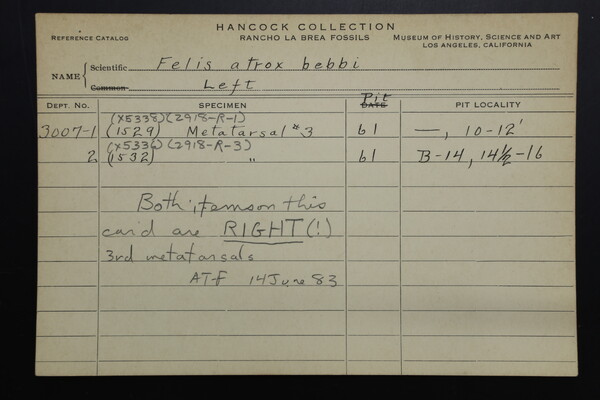 HANCOCK COLLECTION
REFERENCE CATALOG RANCHO LA BREA FOSSILS MUSEUM OF HISTORY, SCIENCE AND ART
LOS ANGELES, CALIFORNIA
NAME { Scientific Felis atrox bebbi
Common Left
Pit
DEPT. NO. SPECIMEN DATE PIT LOCALITY
(X5338)(2918-R-1)
3007-1 (1529) Metatarsal #3 61 —, 10-12'
(X5336)(2918-R-3)
2 (1532) " 61 B-14, 14½-16
Both items on this
card are RIGHT(!)
3rd metatarsals
ATF 14 June 83